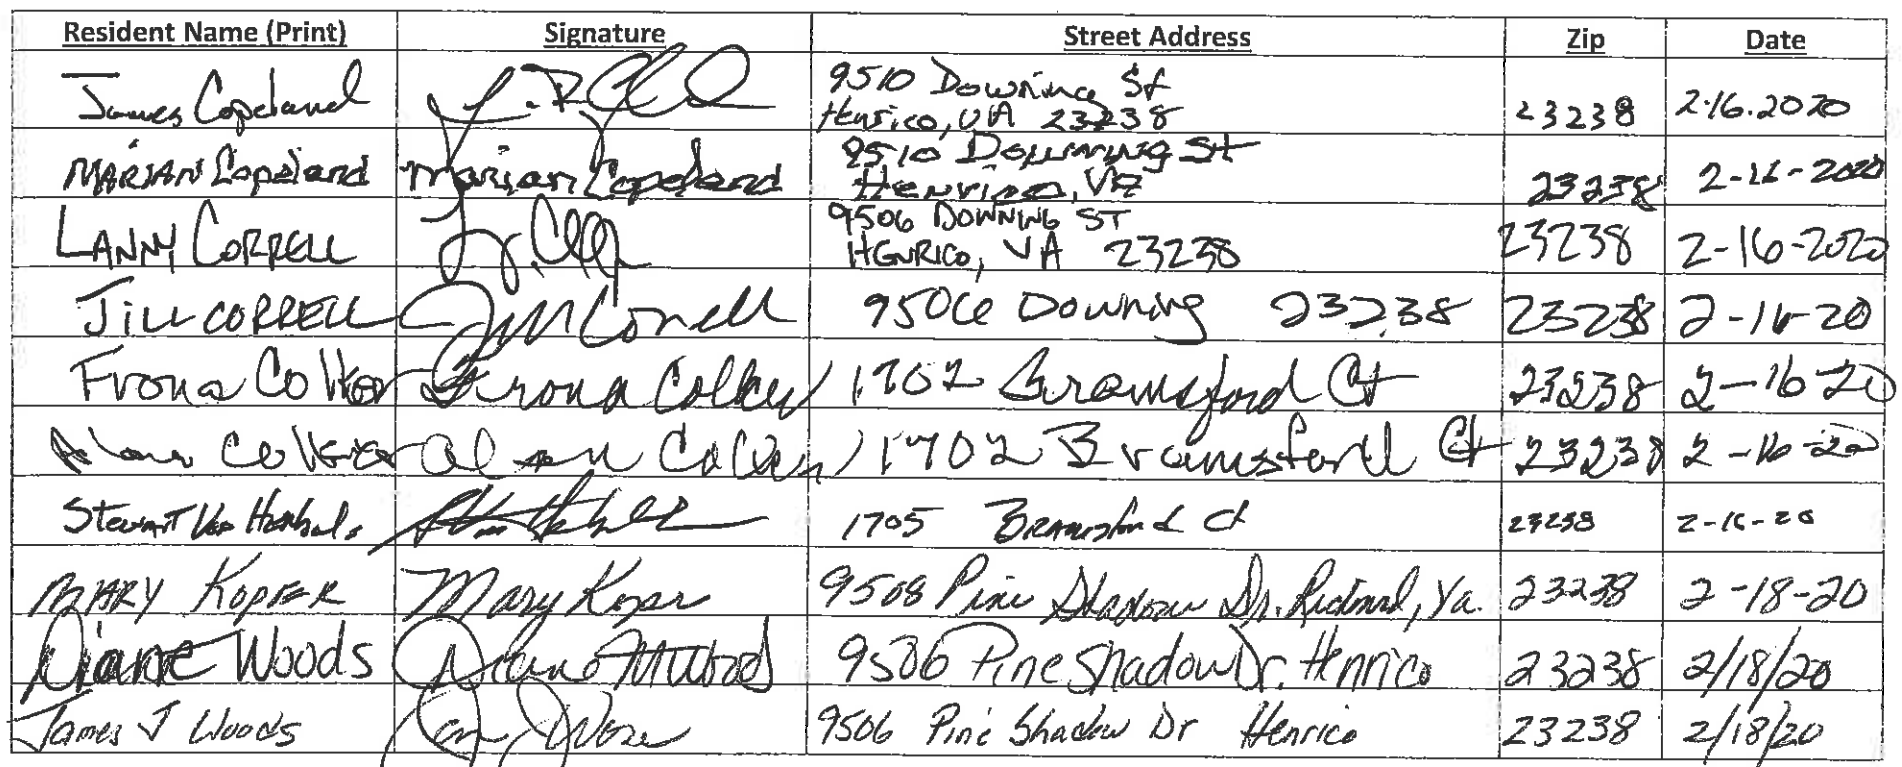 Resident Name (Print) Signature Street Address Zip Date
James Copeland 9510 Downing St
Henrico, VA 23238 23238 2.16.2020
MARIAN Copeland Marian Copeland 9510 Downing St
Henrico, VA 23238 2-16-2020
LANNY CORRELL 9506 DOWNING ST
HENRICO, VA 23238 23238 2-16-2020
JILL CORRELL Jill Correll 9506 Downing 23238 23238 2-16-20
Frona Colker Frona Colker 1702 Bramsford Ct 23238 2-16-20
Alan Colker Alan Colker 1702 Bramsford Ct 23238 2-16-20
Stewart 1705 Bramsford Ct 23238 2-16-20
MARY KOPFER Mary Kopfer 9508 Pine Shadow Dr. Richmond, Va. 23238 2-18-20
Diane Woods Diane M Woods 9506 Pine Shadow Dr. Henrico 23238 2/18/20
James J Woods 9506 Pine Shadow Dr Henrico 23238 2/18/20